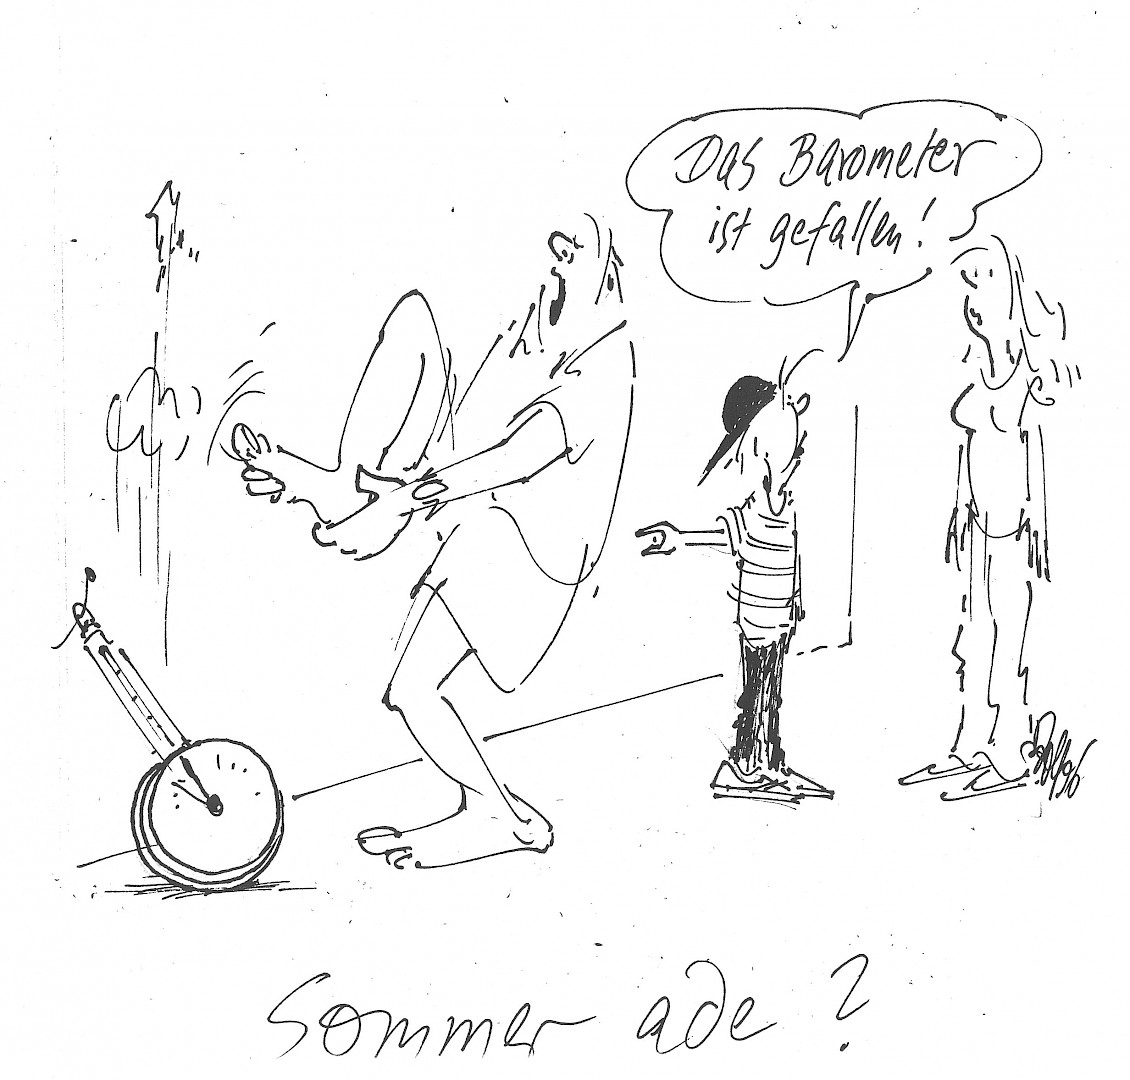 Das Barometer
ist gefallen!
Sommer ade?